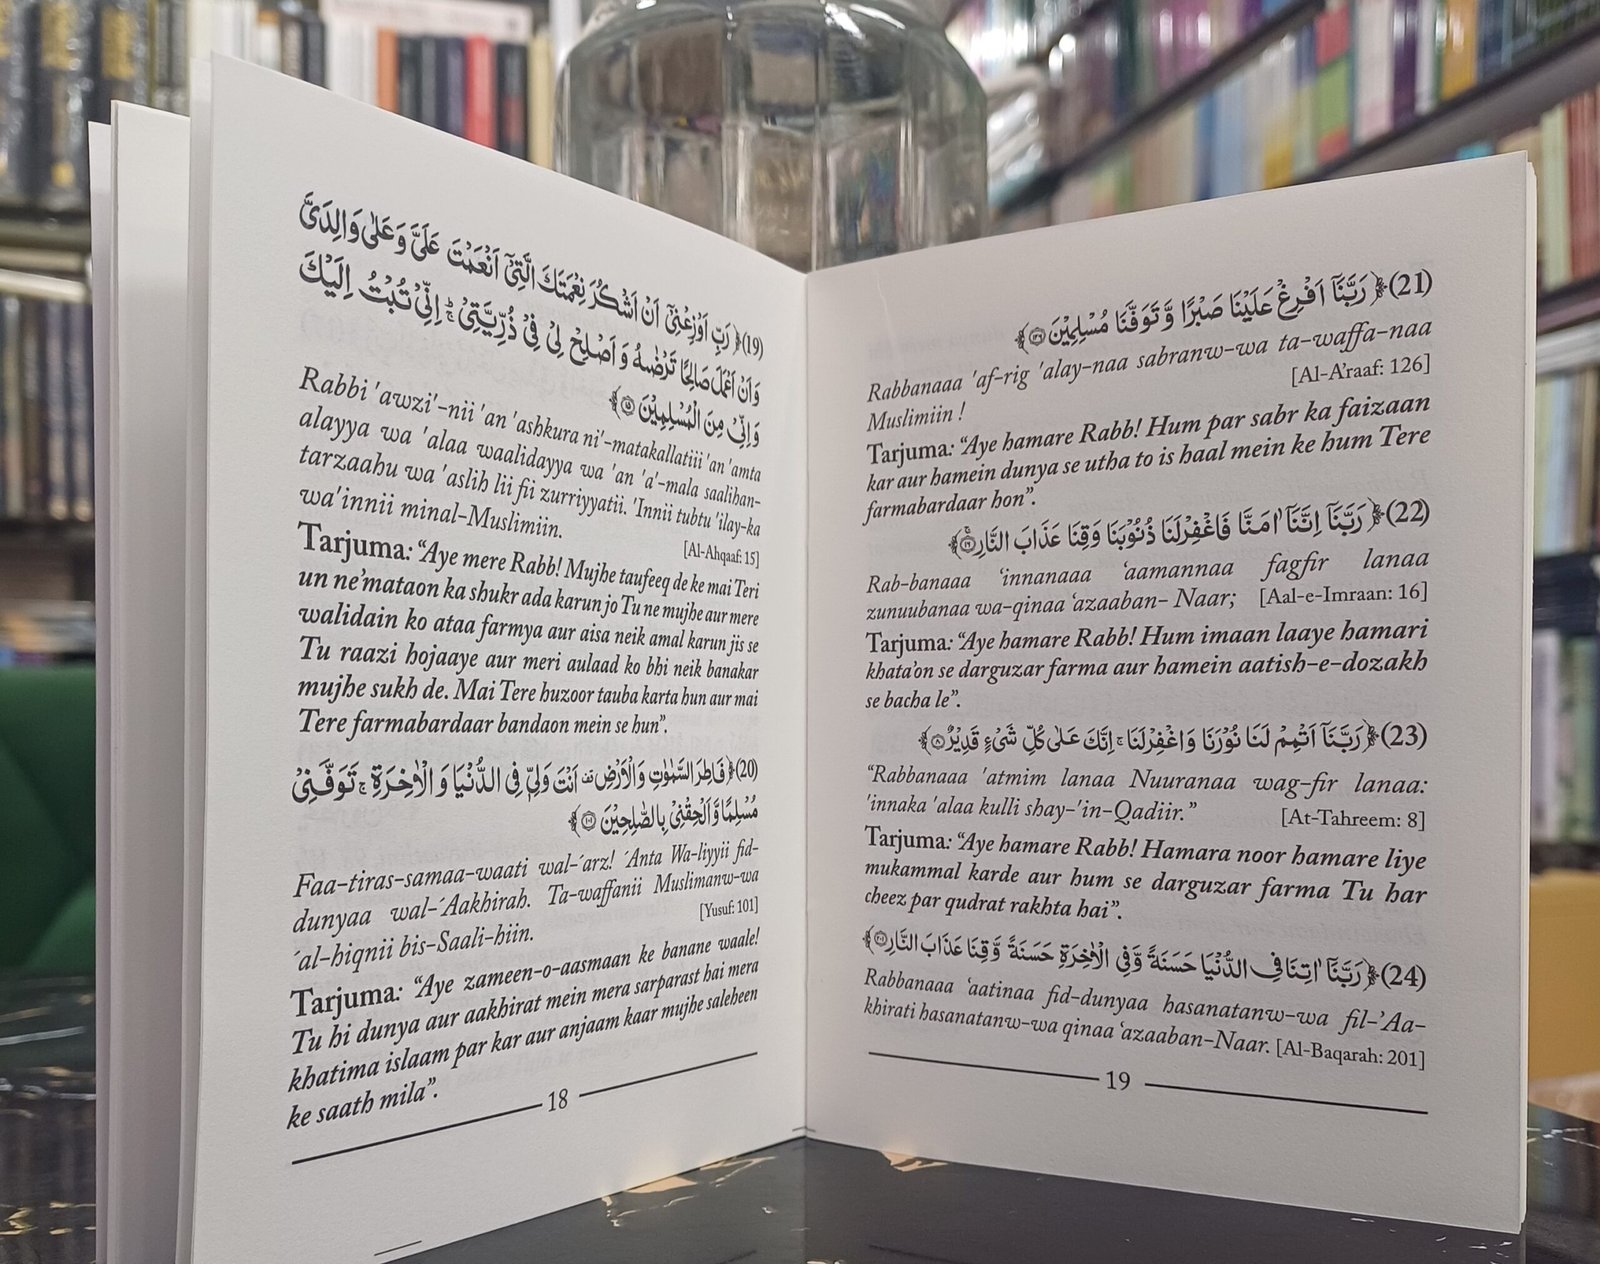 (19)﴿ رَبِّ اَوْزِعْنِیْۤ اَنْ اَشْكُرَ نِعْمَتَكَ الَّتِیْۤ اَنْعَمْتَ عَلَیَّ وَعَلٰی وَالِدَیَّ
وَاَنْ اَعْمَلَ صَالِحًا تَرْضٰىهُ وَاَصْلِحْ لِیْ فِیْ ذُرِّیَّتِیْ ۚؕ اِنِّیْ تُبْتُ اِلَیْكَ
وَاِنِّیْ مِنَ الْمُسْلِمِیْنَ ۝۱۵﴾
Rabbi 'awzi'-nii 'an 'ashkura ni'-matakallatiii 'an 'amta
alayya wa 'alaa waalidayya wa 'an 'a'-mala saalihan-
tarzaahu wa 'aslih lii fii zurriyyatii. 'Innii tubtu 'ilay-ka
wa'innii minal-Muslimiin.
[Al-Ahqaaf: 15]
Tarjuma: “Aye mere Rabb! Mujhe taufeeq de ke mai Teri
un ne’mataon ka shukr ada karun jo Tu ne mujhe aur mere
walidain ko ataa farmya aur aisa neik amal karun jis se
Tu raazi hojaaye aur meri aulaad ko bhi neik banakar
mujhe sukh de. Mai Tere huzoor tauba karta hun aur mai
Tere farmabardaar bandaon mein se hun”.
(20)﴿ فَاطِرَ السَّمٰوٰتِ وَالْاَرْضِ ۫ اَنْتَ وَلِیّٖ فِی الدُّنْیَا وَالْاٰخِرَةِ ۚ تَوَفَّنِیْ
مُسْلِمًا وَّاَلْحِقْنِیْ بِالصّٰلِحِیْنَ ۝۱۰۱﴾
Faa-tiras-samaa-waati wal-´arz! ´Anta Wa-liyyii fid-
dunyaa wal-´Aakhirah. Ta-waffanii Muslimanw-wa
´al-hiqnii bis-Saali-hiin.
[Yusuf: 101]
Tarjuma: “Aye zameen-o-aasmaan ke banane waale!
Tu hi dunya aur aakhirat mein mera sarparast hai mera
khatima islaam par kar aur anjaam kaar mujhe saleheen
ke saath mila”.
18
(21)﴿ رَبَّنَاۤ اَفْرِغْ عَلَیْنَا صَبْرًا وَّتَوَفَّنَا مُسْلِمِیْنَ ۝۱۲۶﴾
Rabbanaaa 'af-rig 'alay-naa sabranw-wa ta-waffa-naa
Muslimiin !
[Al-A’raaf: 126]
Tarjuma: “Aye hamare Rabb! Hum par sabr ka faizaan
kar aur hamein dunya se utha to is haal mein ke hum Tere
farmabardaar hon”.
(22)﴿ رَبَّنَاۤ اِنَّنَاۤ اٰمَنَّا فَاغْفِرْلَنَا ذُنُوْبَنَا وَقِنَا عَذَابَ النَّارِ ۝۱۶﴾
Rab-banaaa ‘innanaaa ‘aamannaa fagfir lanaa
zunuubanaa wa-qinaa ‘azaaban- Naar; [Aal-e-Imraan: 16]
Tarjuma: “Aye hamare Rabb! Hum imaan laaye hamari
khata’on se darguzar farma aur hamein aatish-e-dozakh
se bacha le”.
(23)﴿ رَبَّنَاۤ اَتْمِمْ لَنَا نُوْرَنَا وَاغْفِرْلَنَا ۚ اِنَّكَ عَلٰی كُلِّ شَیْءٍ قَدِیْرٌ ۝۸﴾
“Rabbanaaa 'atmim lanaa Nuuranaa wag-fir lanaa:
'innaka 'alaa kulli shay-'in-Qadiir.” [At-Tahreem: 8]
Tarjuma: “Aye hamare Rabb! Hamara noor hamare liye
mukammal karde aur hum se darguzar farma Tu har
cheez par qudrat rakhta hai”.
(24)﴿ رَبَّنَاۤ اٰتِنَا فِی الدُّنْیَا حَسَنَةً وَّفِی الْاٰخِرَةِ حَسَنَةً وَّقِنَا عَذَابَ النَّارِ ۝۲۰۱﴾
Rabbanaaa ‘aatinaa fid-dunyaa hasanatanw-wa fil-’Aa-
khirati hasanatanw-wa qinaa ‘azaaban-Naar. [Al-Baqarah: 201]
19